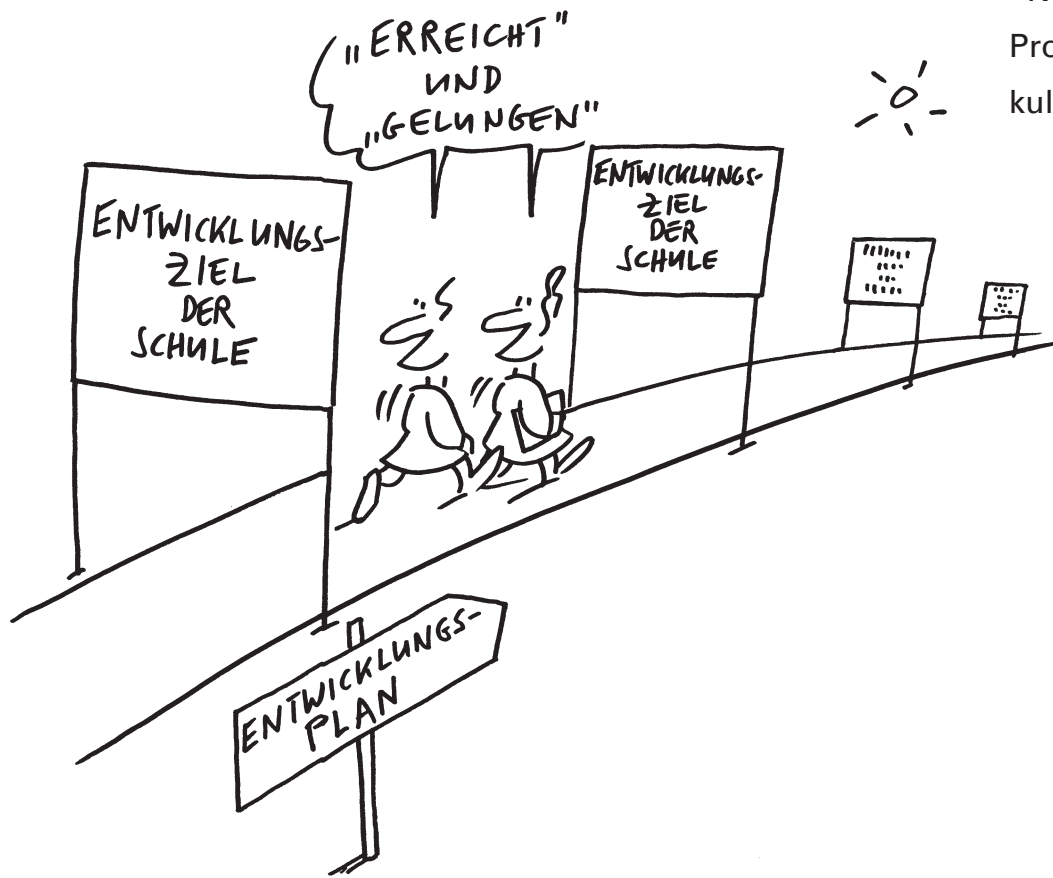 „ERREICHT"
UND
„GELUNGEN"
ENTWICKLUNGS-
ZIEL
DER
SCHULE
ENTWICKLUNGS-
ZIEL
DER
SCHULE
ENTWICKLUNGS-
PLAN
Pro
kul